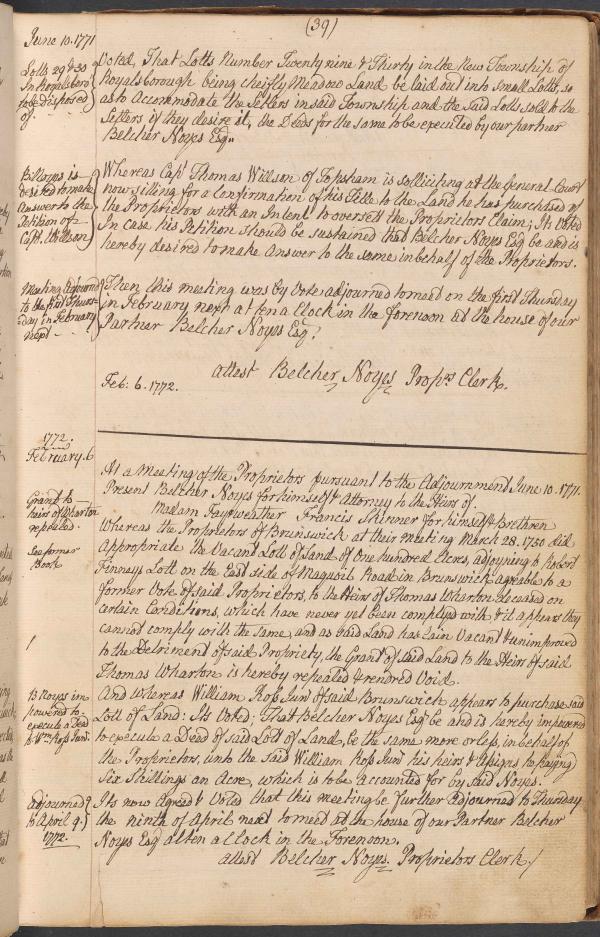 (39)
June 10. 1771
Lotts 29 & 30
In Royalsboro'
to be disposed
of
Voted, That Lotts Number Twenty nine & Thirty in the New Township of
Royalsborough being cheifly Meadow Land be laid out into small Lotts, so
as to Accommodate the Setlers in said Township and the said Lotts sold to the
Setlers if they desire it, the Deeds for the same to be executed by our partner
Belcher Noyes Esqr.
B. Noyes is
desired to make
Answer to the
Petition of
Capt. Willson
Whereas Capt. Thomas Willson of Topsham is solliciting at the General Court
now sitting for a Confirmation of his Title to the Land he has purchased of
the Proprietors with an Intent to oversett the Proprietors Claim; Its Voted
In case his Petition should be sustained that Belcher Noyes Esqr be and is
hereby desired to make Answer to the same in behalf of the Proprietors.
Meeting Adjourned
to the first Thurs-
day in February
next
Then this meeting was by Vote adjourned to meet on the first Thursday
in February next at ten a Clock in the forenoon at the house of our
Partner Belcher Noyes Esqr.
attest Belcher Noyes Proprs Clerk.
Feb: 6. 1772.
1772.
February. 6
At a Meeting of the Proprietors pursuant to the Adjournment June 10. 1771.
Present Belcher Noyes for himself & Attorney to the Heirs of
Madam Fayrweather Francis Skinner for himself & Brethren
Grant to
heirs of Wharton
repealed.
See former
Book
Whereas the Proprietors of Brunswick at their Meeting March 28. 1750 did
Appropriate the Vacant Lott of Land of One hundred Acres, adjoyning to Robert
Finneys Lott on the East side of Maquoit Road in Brunswick agreable to a
former Vote of said Proprietors, to the Heirs of Thomas Wharton deceased on
certain Conditions, which have never yet been complyd with & it appears they
cannot comply with the same, and as said Land has lain Vacant & unimproved
to the Detriment of said Propriety, the Grant of said Land to the Heirs of said
Thomas Wharton is hereby repealed & rendred Void.
B Noyes im-
powered to
execute a Deed
to Wm Ross Junr.
And whereas William Ross Junr of said Brunswick appears to purchase said
Lott of Land: Its Voted, That Belcher Noyes Esqr be and is hereby impowered
to execute a Deed of said Lott of Land, be the same more or less, in behalf of
the Proprietors, unto the said William Ross Junr his heirs & Assigns he paying
Six Shillings an Acre, which is to be accounted for by said Noyes.
Adjourned
to April 9.
1772.
Its now Agreed & Voted that this meeting be further Adjourned to Thursday
the ninth of April next to meet at the house of our Partner Belcher
Noyes Esqr at ten a Clock in the Forenoon.
attest Belcher Noyes. Proprietors Clerk